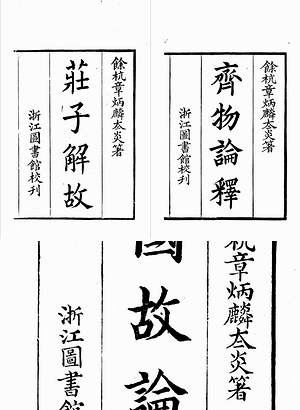 餘杭章炳麟夳炎箸
齊物論釋
浙江圖書館校刊
餘杭章炳麟夳炎箸
莊子解故
浙江圖書館校刊
杭章炳麟夳炎箸
國故論
浙江圖書館